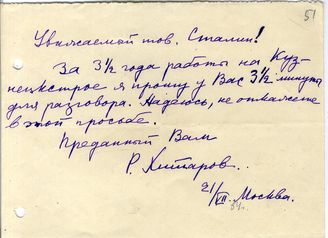 51
Уважаемой тов. Сталин!
За 3½ года работы на Куз-
нецкстрое я прошу у Вас 3½ минуты
для разговора. Надеюсь, не откажете
в этой просьбе.
Преданный Вам
Р. Хитаров.
21/VII 34г. Москва.